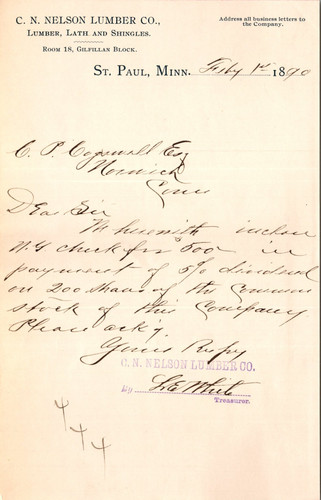 C. N. NELSON LUMBER CO.,
LUMBER, LATH AND SHINGLES.
ROOM 18, GILFILLAN BLOCK.
Address all business letters to
the Company.
ST. PAUL, MINN. Feby 1st 1890
C. P. Cogswell Esq
Norwich
Conn
Dear Sir
We herewith inclose
N.Y. check for 500 in
payment of 5% dividend
on 200 shares of the Common
stock of this Company
Please ack'g.
Yours Respy
C. N. NELSON LUMBER CO.
By L. E. White
Treasurer.